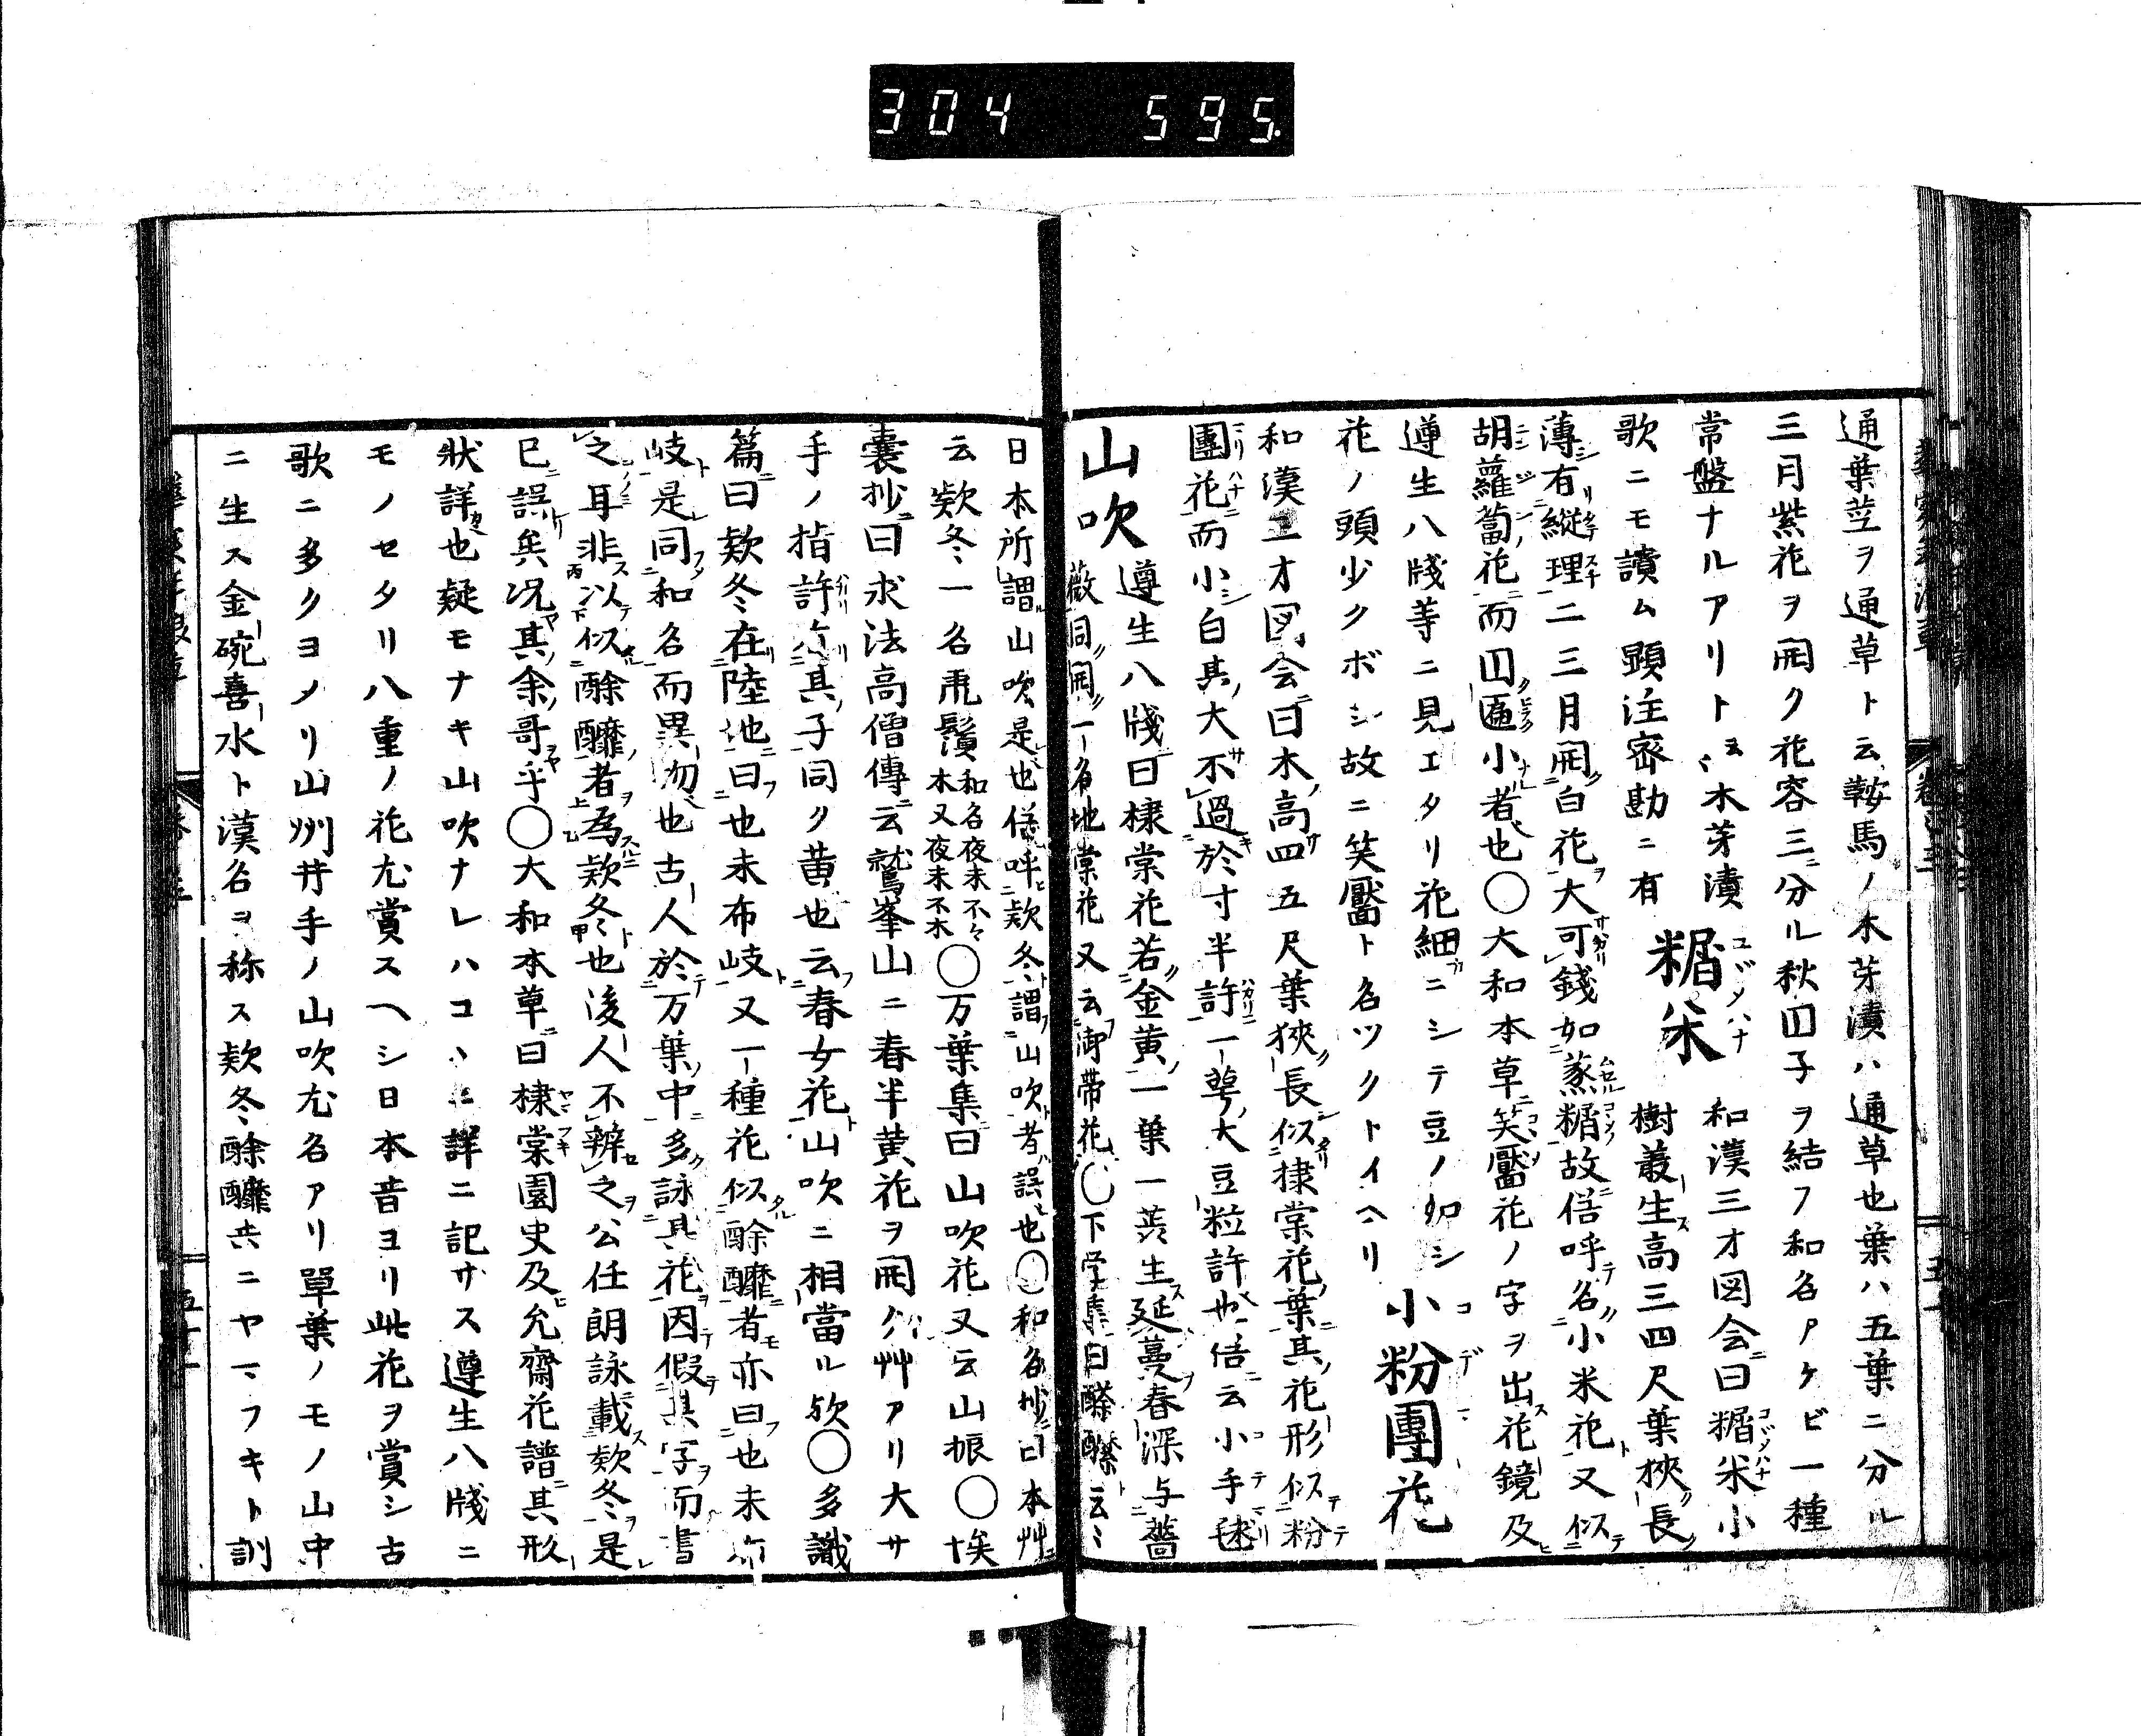 304 595.
通葉莖ヲ通草ト云鞍馬ノ木芽漬ハ通草也葉ハ五葉ニ分ル
三月紫花ヲ開ク花容三ニ分ル秋四子ヲ結フ和名アケビ一種
常盤ナルアリト云木芽漬
歌ニモ讀ム顕注密勘ニ有
糏米 和漢三才図会曰糏米小
樹叢生高三四尺葉狹長
薄有縦理二三月開白花大可錢如蒸糏故俗呼名小米花又似
胡蘿蔔花而四匾小者也〇大和本草笑靨花ノ字ヲ出ス花鏡及
遵生八牋等ニ見エタリ花細ニシテ豆ノ如シ
花ノ頭少クボシ故ニ笑靨ト名ツクトイヘリ
小粉團花
和漢三才図会曰木高四五尺葉狹長似棣棠花葉其花形似粉
團花而小白其大不過於寸半許一萼大豆粒許也俗云小手毬
山吹 遵生八牋曰棣棠花若金黄一葉一蕊生延蔓春深与薔
薇同開一名地棠花又云御帯花〇下学集曰醛醿云云
日本所謂山吹是也俗呼欵冬謂山吹者誤也〇和名抄曰本艸
云欵冬一名虎鬚 和名夜末不々木又夜末不木 〇万葉集曰山吹花又云山振〇埃
嚢抄曰求法高僧傳云鷲峯山ニ春半黄花ヲ開ク艸アリ大サ
手ノ指許亦其子同ク黄也云春女花山吹ニ相當ル欤〇多識
篇曰欵冬在陸地曰也未布岐又一種花似酴醿者亦曰也未布
岐是同和名而異物也古人於万葉中多詠其花因假其字而書
之耳非以似酴醿者為欵冬也後人不辨之公任朗詠載欵冬是
已誤矣况其余哥乎〇大和本草曰棣棠園史及允齋花譜其形
狀詳也疑モナキ山吹ナレハコヽニ詳ニ記サス遵生八牋ニ
モノセタリ八重ノ花尤賞スヘシ日本昔ヨリ此花ヲ賞シ古
歌ニ多クヨメリ山州井手ノ山吹尤名アリ單葉ノモノ山中
ニ生ス金碗喜水ト漢名ヲ称ス欵冬酴醿共ニヤマフキト訓